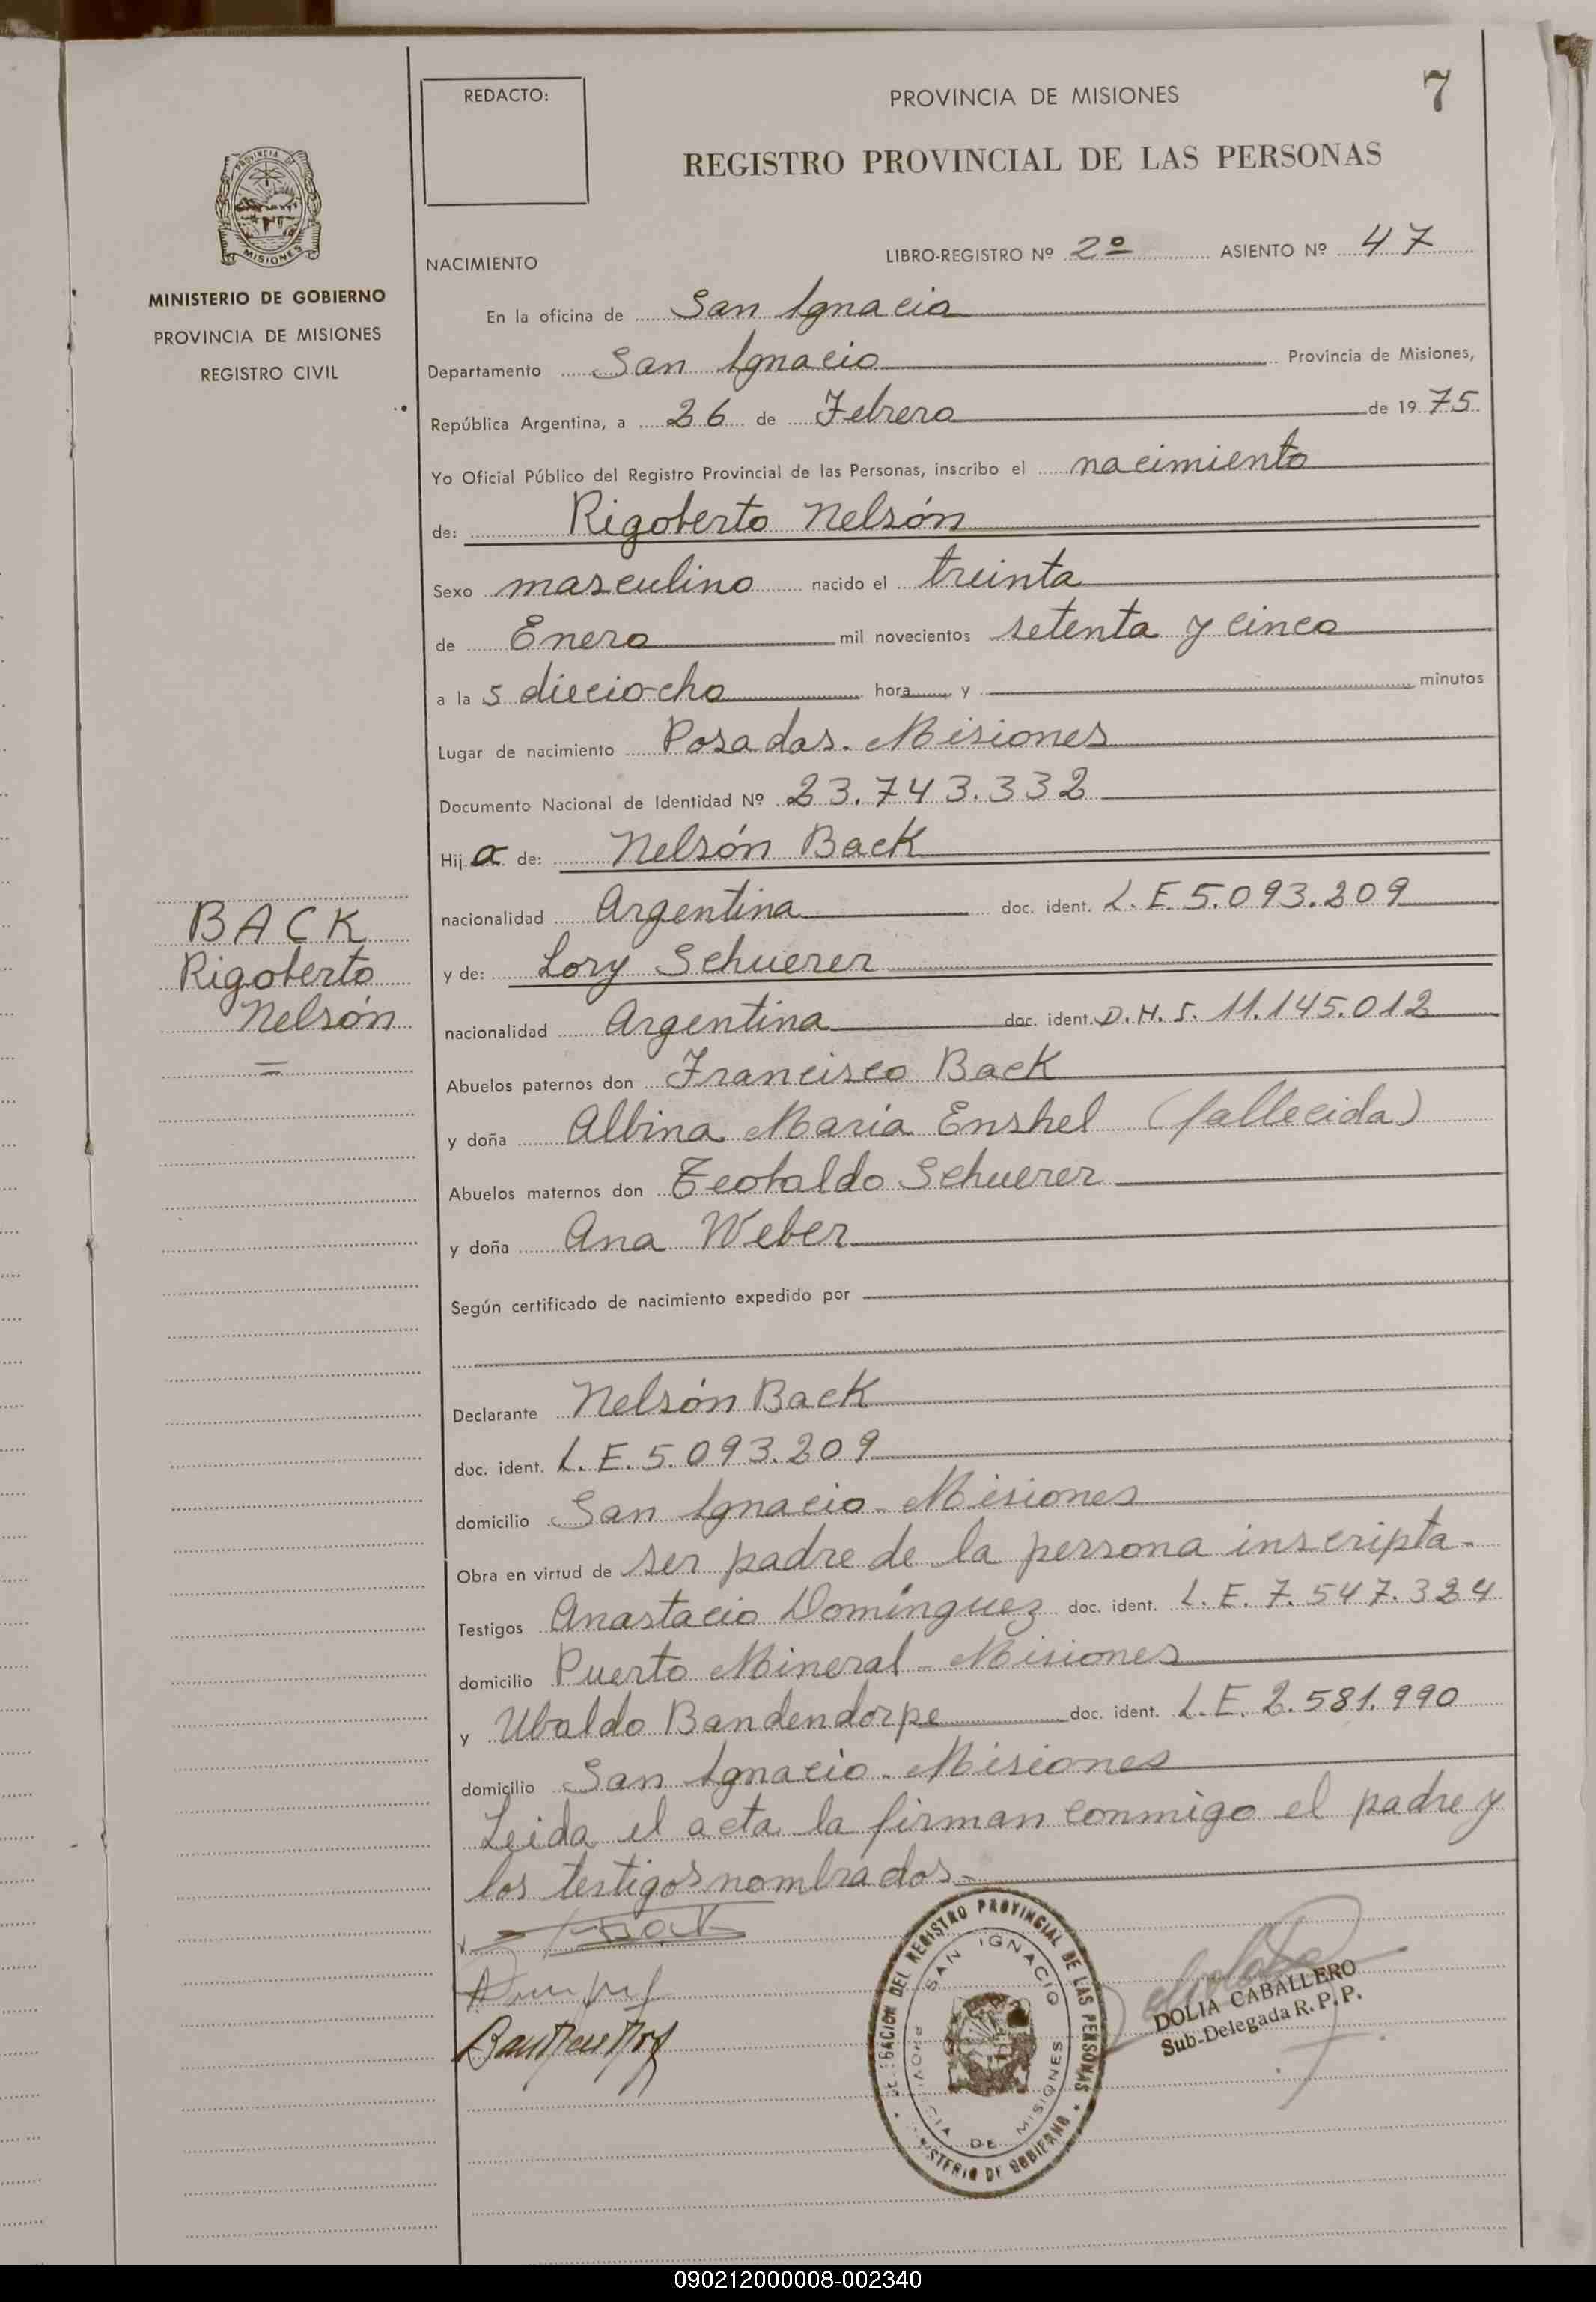 7
REDACTO:
PROVINCIA DE MISIONES
REGISTRO PROVINCIAL DE LAS PERSONAS
PROVINCIA DE
MISIONES
MINISTERIO DE GOBIERNO
PROVINCIA DE MISIONES
REGISTRO CIVIL
NACIMIENTO
LIBRO-REGISTRO Nº 2º ASIENTO Nº 47
En la oficina de San Ignacio
Departamento San Ignacio Provincia de Misiones,
República Argentina, a 26 de Febrero de 1975
Yo Oficial Público del Registro Provincial de las Personas, inscribo el nacimiento
de: Rigoberto Nelsón
Sexo masculino nacido el treinta
de Enero mil novecientos setenta y cinco
a la s dieciocho hora y minutos
Lugar de nacimiento Posadas. Misiones
Documento Nacional de Identidad Nº 23.743.332
Hijo de: Nelsón Back
nacionalidad Argentina doc. ident. L.E. 5.093.209
y de: Lory Schuerer
nacionalidad Argentina doc. ident. D.N.I. 11.145.012
Abuelos paternos don Francisco Back
y doña Albina Maria Enshel (fallecida)
Abuelos maternos don Teobaldo Schuerer
y doña Ana Weber
Según certificado de nacimiento expedido por
Declarante Nelsón Back
doc. ident. L.E. 5.093.209
domicilio San Ignacio - Misiones
Obra en virtud de ser padre de la persona inscripta.
Testigos Anastacio Domínguez doc. ident. L.E. 7.547.324
domicilio Puerto Mineral - Misiones
y Ubaldo Bandendorpe doc. ident. L.E. 2.581.990
domicilio San Ignacio. Misiones
Leida el acta la firman conmigo el padre y
los testigos nombrados.
BACK
Rigoberto
Nelsón
DELEGACION DEL REGISTRO PROVINCIAL DE LAS PERSONAS
SAN IGNACIO
PROVINCIA DE MISIONES
MINISTERIO DE GOBIERNO
DOLIA CABALLERO
Sub-Delegada R.P.P.
090212000008-002340